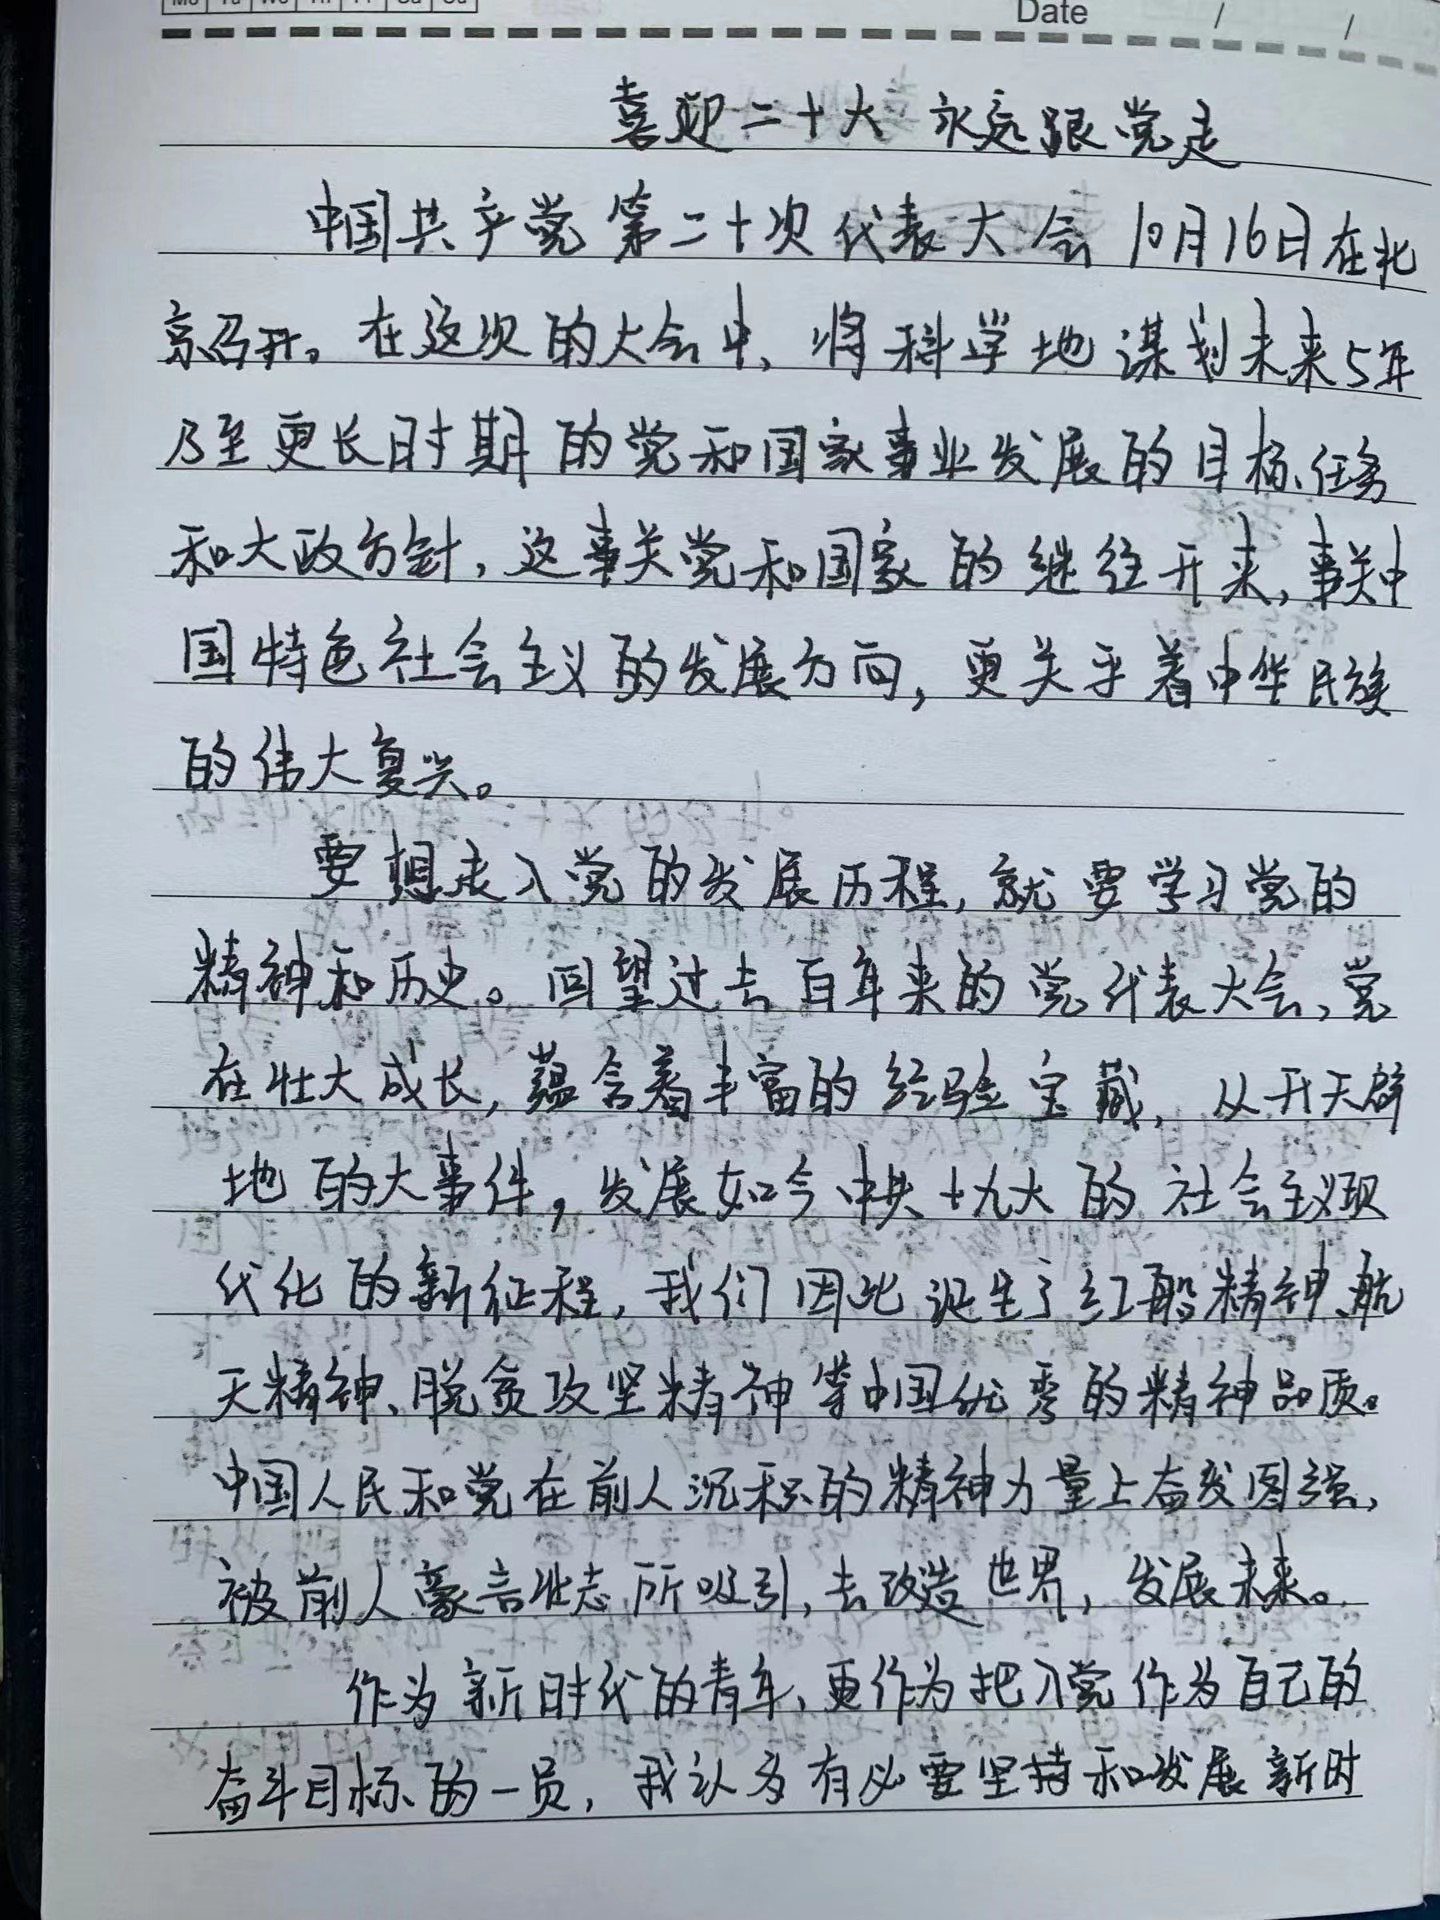 Mo Tu We Th Fr Sa Su
Date / /
喜迎二十大 永远跟党走
中国共产党第二十次代表大会10月16日在北
京召开。在这次的大会中,将科学地谋划未来5年
乃至更长时期的党和国家事业发展的目标、任务
和大政方针,这事关党和国家的继往开来,事关中
国特色社会主义的发展方向,更关乎着中华民族
的伟大复兴。
要想走入党的发展历程,就要学习党的
精神和历史。回望过去百年来的党代表大会,党
在壮大成长,蕴含着丰富的经验宝藏,从开天辟
地的大事件,发展如今中共十九大的社会主义现
代化的新征程,我们因此诞生了红船精神、航
天精神、脱贫攻坚精神等中国优秀的精神品质。
中国人民和党在前人沉积的精神力量上奋发图强,
被前人豪言壮志所吸引,去改造世界,发展未来。
作为新时代的青年,更作为把入党作为自己的
奋斗目标的一员,我认为有必要坚持和发展新时